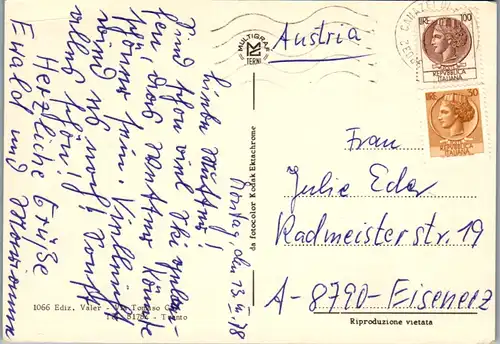 Austria
MULTIGRAF
TERNI
CANAZEI
LIRE 100
REPUBBLICA
ITALIANA
LIRE 50
REPUBBLICA
ITALIANA
den 13. II. 78
Liebe Mutti!
Sind schon viel Ski gelau-
fen, das Wetter könnte
schöner sein. Vielleicht
wird es noch! Sonst
alles schön!
Herzliche Grüße
Ewald und Marianne
Frau
Julie Eder
Radmeisterstr. 19
A-8790-Eisenerz
da fotocolor Kodak Ektachrome
1066 Ediz. Valer - Via Tomaso
Trento
Riproduzione vietata